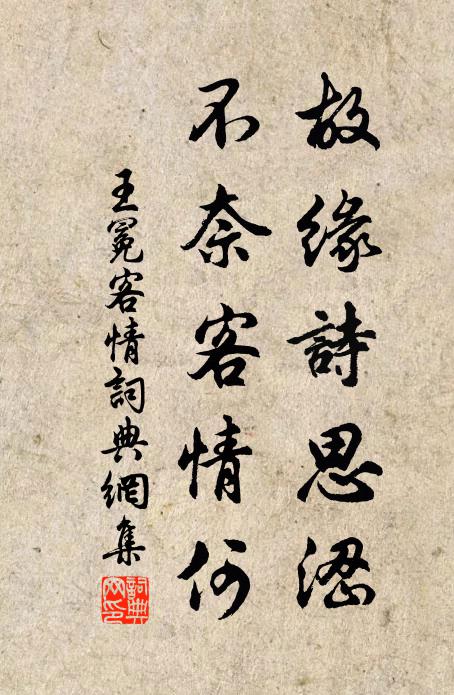 故緣詩思澀
不奈客情何
王冕客情詞典網集
詞典
网印